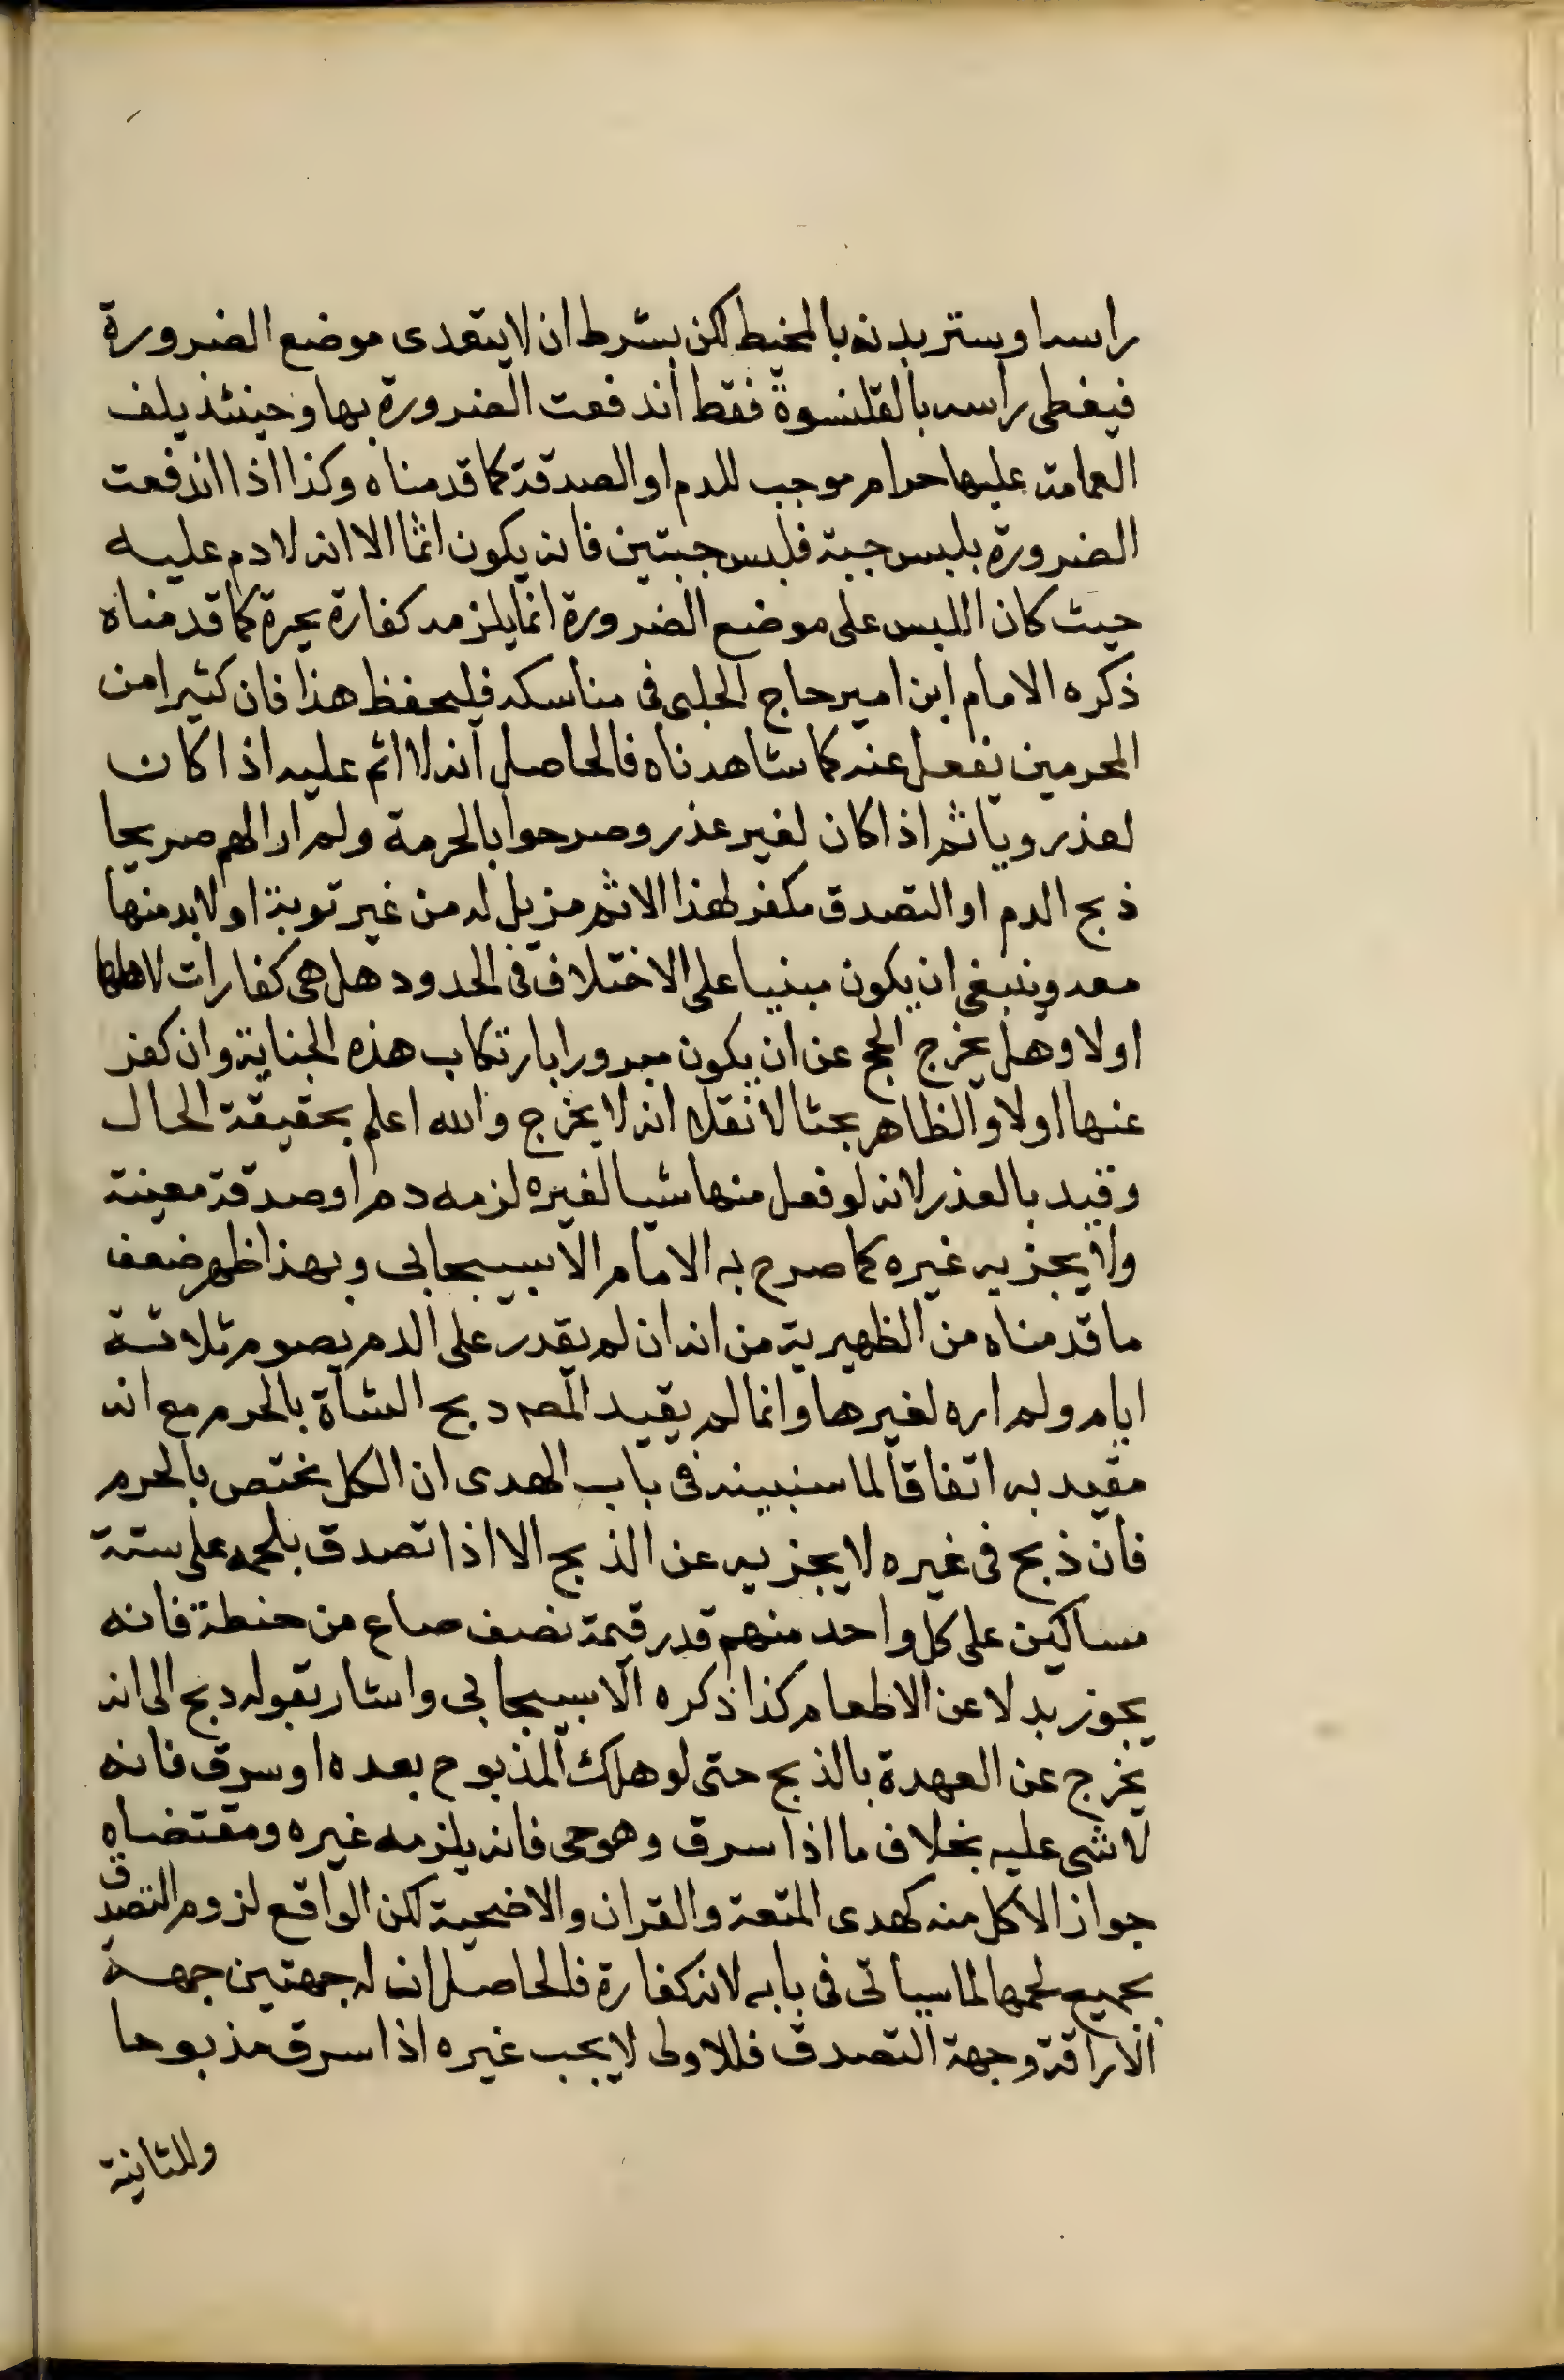 راسه او ستر بدنه بالمخيط لكن بشرط ان لا يتعدى موضع الضرورة
فيغطى راسه بالقلنسوة فقط ان اندفعت الضرورة بها وحينئذ يلف
العمامة عليها حرام موجب للدم او الصدقة كما قدمناه وكذا اذا اندفعت
الضرورة بلبس جبة فلبس جبتين فانه يكون اثما الا انه لا دم عليه
حيث كان اللبس على موضع الضرورة انما يلزمه كفارة يخيرة كما قدمناه
ذكره الامام ابن امير حاج الحلبى فى مناسكه فليحفظ هذا فان كثيرا من
المحرمين يغفل عنه كما شاهدناه فالحاصل انه لا اثم عليه اذا كان
لعذر وياثم اذا كان لغير عذر وصرحوا بالحرمة ولم ار لهم صريحا
ذبح الدم او التصدق مكفر لهذا الاثم مزيل له من غير توبة او لا بد منها
معه وينبغى ان يكون مبنيا على الاختلاف فى الحدود هل هى كفارات لاهلها
اولا وهل يخرج الحج عن ان يكون مبرورا بارتكاب هذه الجناية وان كفر
عنها اولا والظاهر بحثا لا نقلا انه لا يخرج والله اعلم بحقيقة الحال
وقيد بالعذر لانه لو فعل منها شيا لغيره لزمه دم او صدقة معينة
ولا يجزيه غيره كما صرح به الامام الاسبيجابى وبهذا ظهر ضعف
ما قدمناه من الظهيرية من انه ان لم يقدر على الدم يصوم ثلاثة
ايام ولم اره لغيرها وانما لم يقيد المصه دبح الشاة بالحرم مع انه
مقيد به اتفاقا لما سنبينه فى باب الهدى ان الكل مختص بالحرم
فان ذبح فى غيره لا يجزيه عن الذبح الا اذا تصدق بلحمه على ستة
مساكين على كل واحد منهم قدر قيمة نصف صاع من حنطة فانه
يجوز بدلا عن الاطعام كذا ذكره الاسبيجابى واشار بقوله دبح الى انه
يخرج عن العهدة بالذبح حتى لو هلك المذبوح بعده او سرق فانه
لا شى عليه بخلاف ما اذا سرق وهو حى فانه يلزمه غيره ومقتضاه
جواز الاكل منه كهدى المتعة والقران والاضحية لكن الواقع لزوم التصدق
بجميع لحمها لما سياتى فى بابه لانه كفارة فالحاصل ان له جهتين جهة
الاراقة وجهة التصدق فللاولى لا يجب غيره اذا سرق مذبوحا
وللثانية